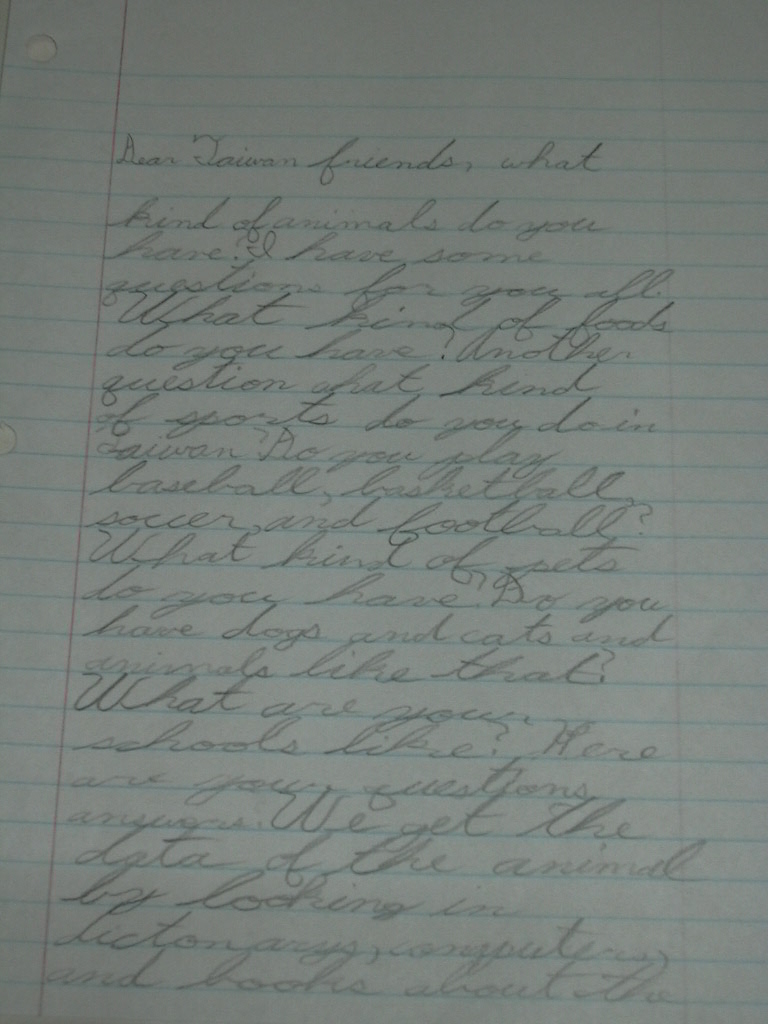 Dear Taiwan friends, what
kind of animals do you
have? I have some
questions for you all.
What kind of foods
do you have? Another
question what kind
of sports do you do in
Taiwan? Do you play
baseball, basketball,
soccer, and football?
What kind of pets
do you have? Do you
have dogs and cats and
animals like that?
What are your
schools like? Here
are your questions
answers. We get the
data of the animal
by looking in
dictonarys, computers,
and books about the